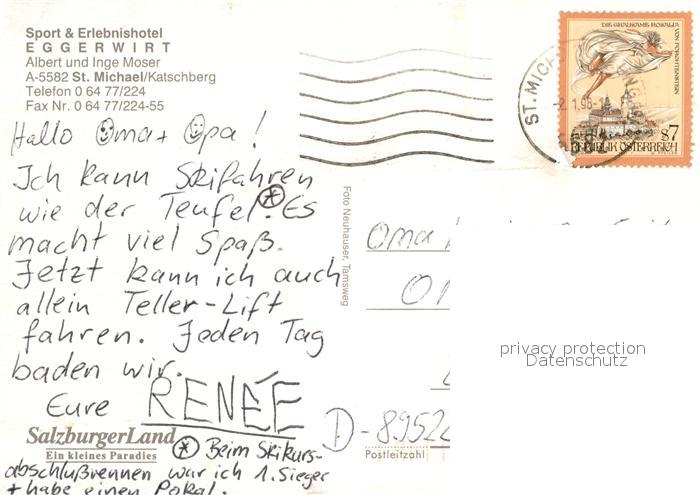 Sport & Erlebnishotel
EGGERWIRT
Albert und Inge Moser
A-5582 St. Michael/Katschberg
Telefon 0 64 77/224
Fax Nr. 0 64 77/224-55
Hallo Oma + Opa!
Ich kann Skifahren
wie der Teufel.* Es
macht viel Spaß.
Jetzt kann ich auch
allein Teller-Lift
fahren. Jeden Tag
baden wir.
Eure RENÉE
SalzburgerLand
Ein kleines Paradies
* Beim Skikurs-
abschlußrennen war ich 1. Sieger
+ habe einen Pokal.
Foto Neuhauser, Tamsweg
DIE GRAUSAME ROSALIA
VON FORCHTENSTEIN
S7
REPUBLIK ÖSTERREICH
ST. MICH
-2.1.96
Oma
D-8952
Postleitzahl
privacy protection
Datenschutz